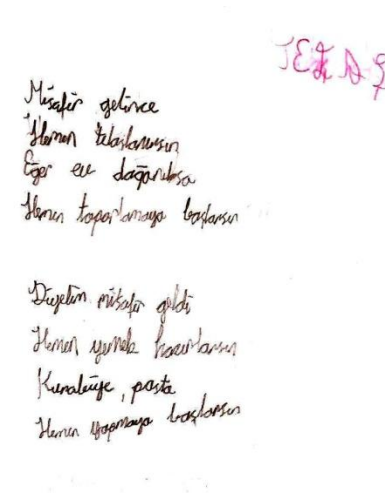 TELAŞ
Misafir gelince
Hemen telaşlanırsın
Eğer ev dağınıksa
Hemen toparlamaya başlarsın
Diyelim misafir geldi
Hemen yemek hazırlarsın
Kurabiye, pasta
Hemen yapmaya başlarsın